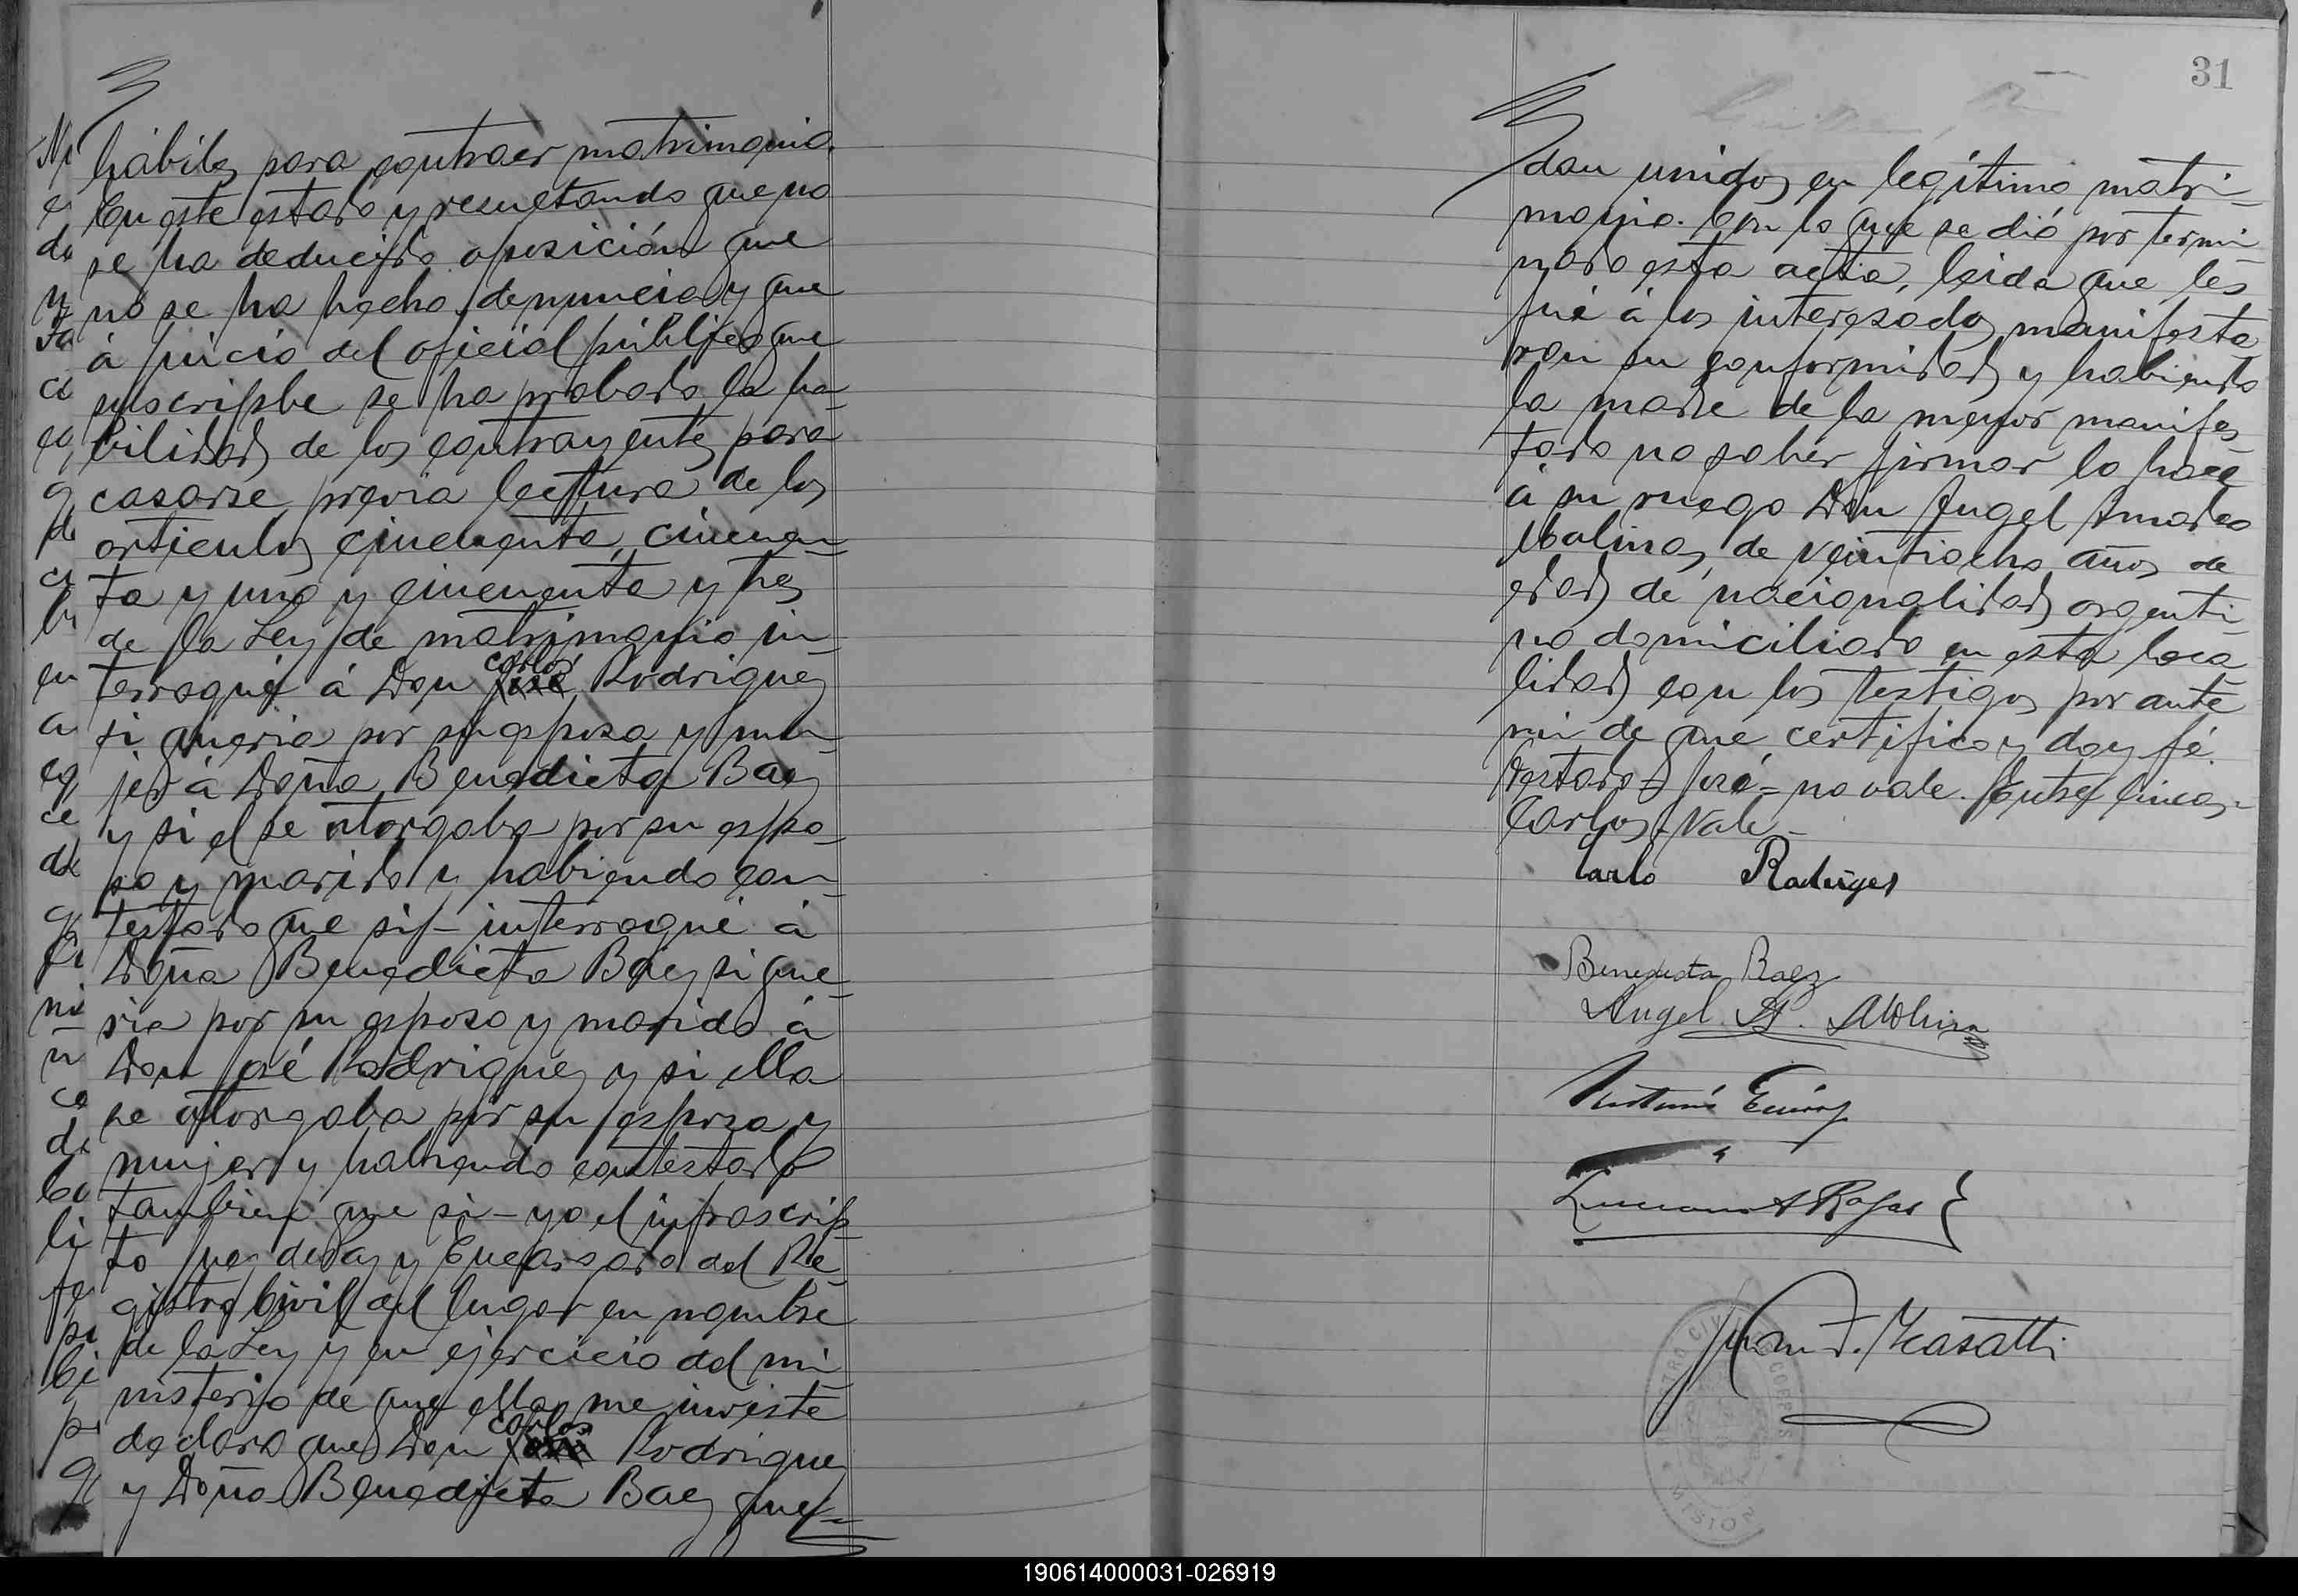 hábiles para contraer matrimonio.
En este estado y resultando que no
se ha deducido oposición que
no se ha hecho denuncia y que
á juicio del oficial público que
suscripbe se ha probado la ha-
bilidad de los contrayentes para
casarse previa lectura de los
articulos cincuenta, cincuen-
ta y uno y cincuenta y tres
de la Ley de matrimonio in-
terrogué á Don José Carlos Rodriguez
si queria por su esposa y mu-
jer á Doña Benedicta Baez
y si el se otorgaba por su espo-
so y marido y habiendo con-
testado que sif - interrogué á
Doña Benedicta Baez si que-
ria por su esposo y marido á
Don José Rodriguez y si ella
se otorgaba por su esposa y
mujer y habiendo contestado
tambien que si - yo el infrascrip-
to Juez de Paz y Encargado del Re-
gistro Civil del lugar en nombre
de la Ley y en ejercicio del mi-
nisterio de que ella me inviste
declaro que Don José Carlos Rodriguez
y Doña Benedicta Baez que-
31
dan unidos en legítimo matri-
monio. Con lo que se dió por termi-
nado esta acta, leida que les
fué á los interesados manifesta-
ron su conformidad y habiendo
la madre de la menor manifes-
tado no saber firmar lo hace
á su ruego Don Angel Amadeo
Molinas, de veintiocho años de
edad de nacionalidad argenti-
no domiciliado en esta loca-
lidad con los testigos por ante
mi de que certifico y doy fé.
Testado - José - no vale. Entre lineas -
Carlos - Vale -
Carlo Radriges
Benedicta Baez
Angel A. Molina
Juan F. Masatti
REGISTRO CIVIL
CORPUS
MISIONES
190614000031-026919